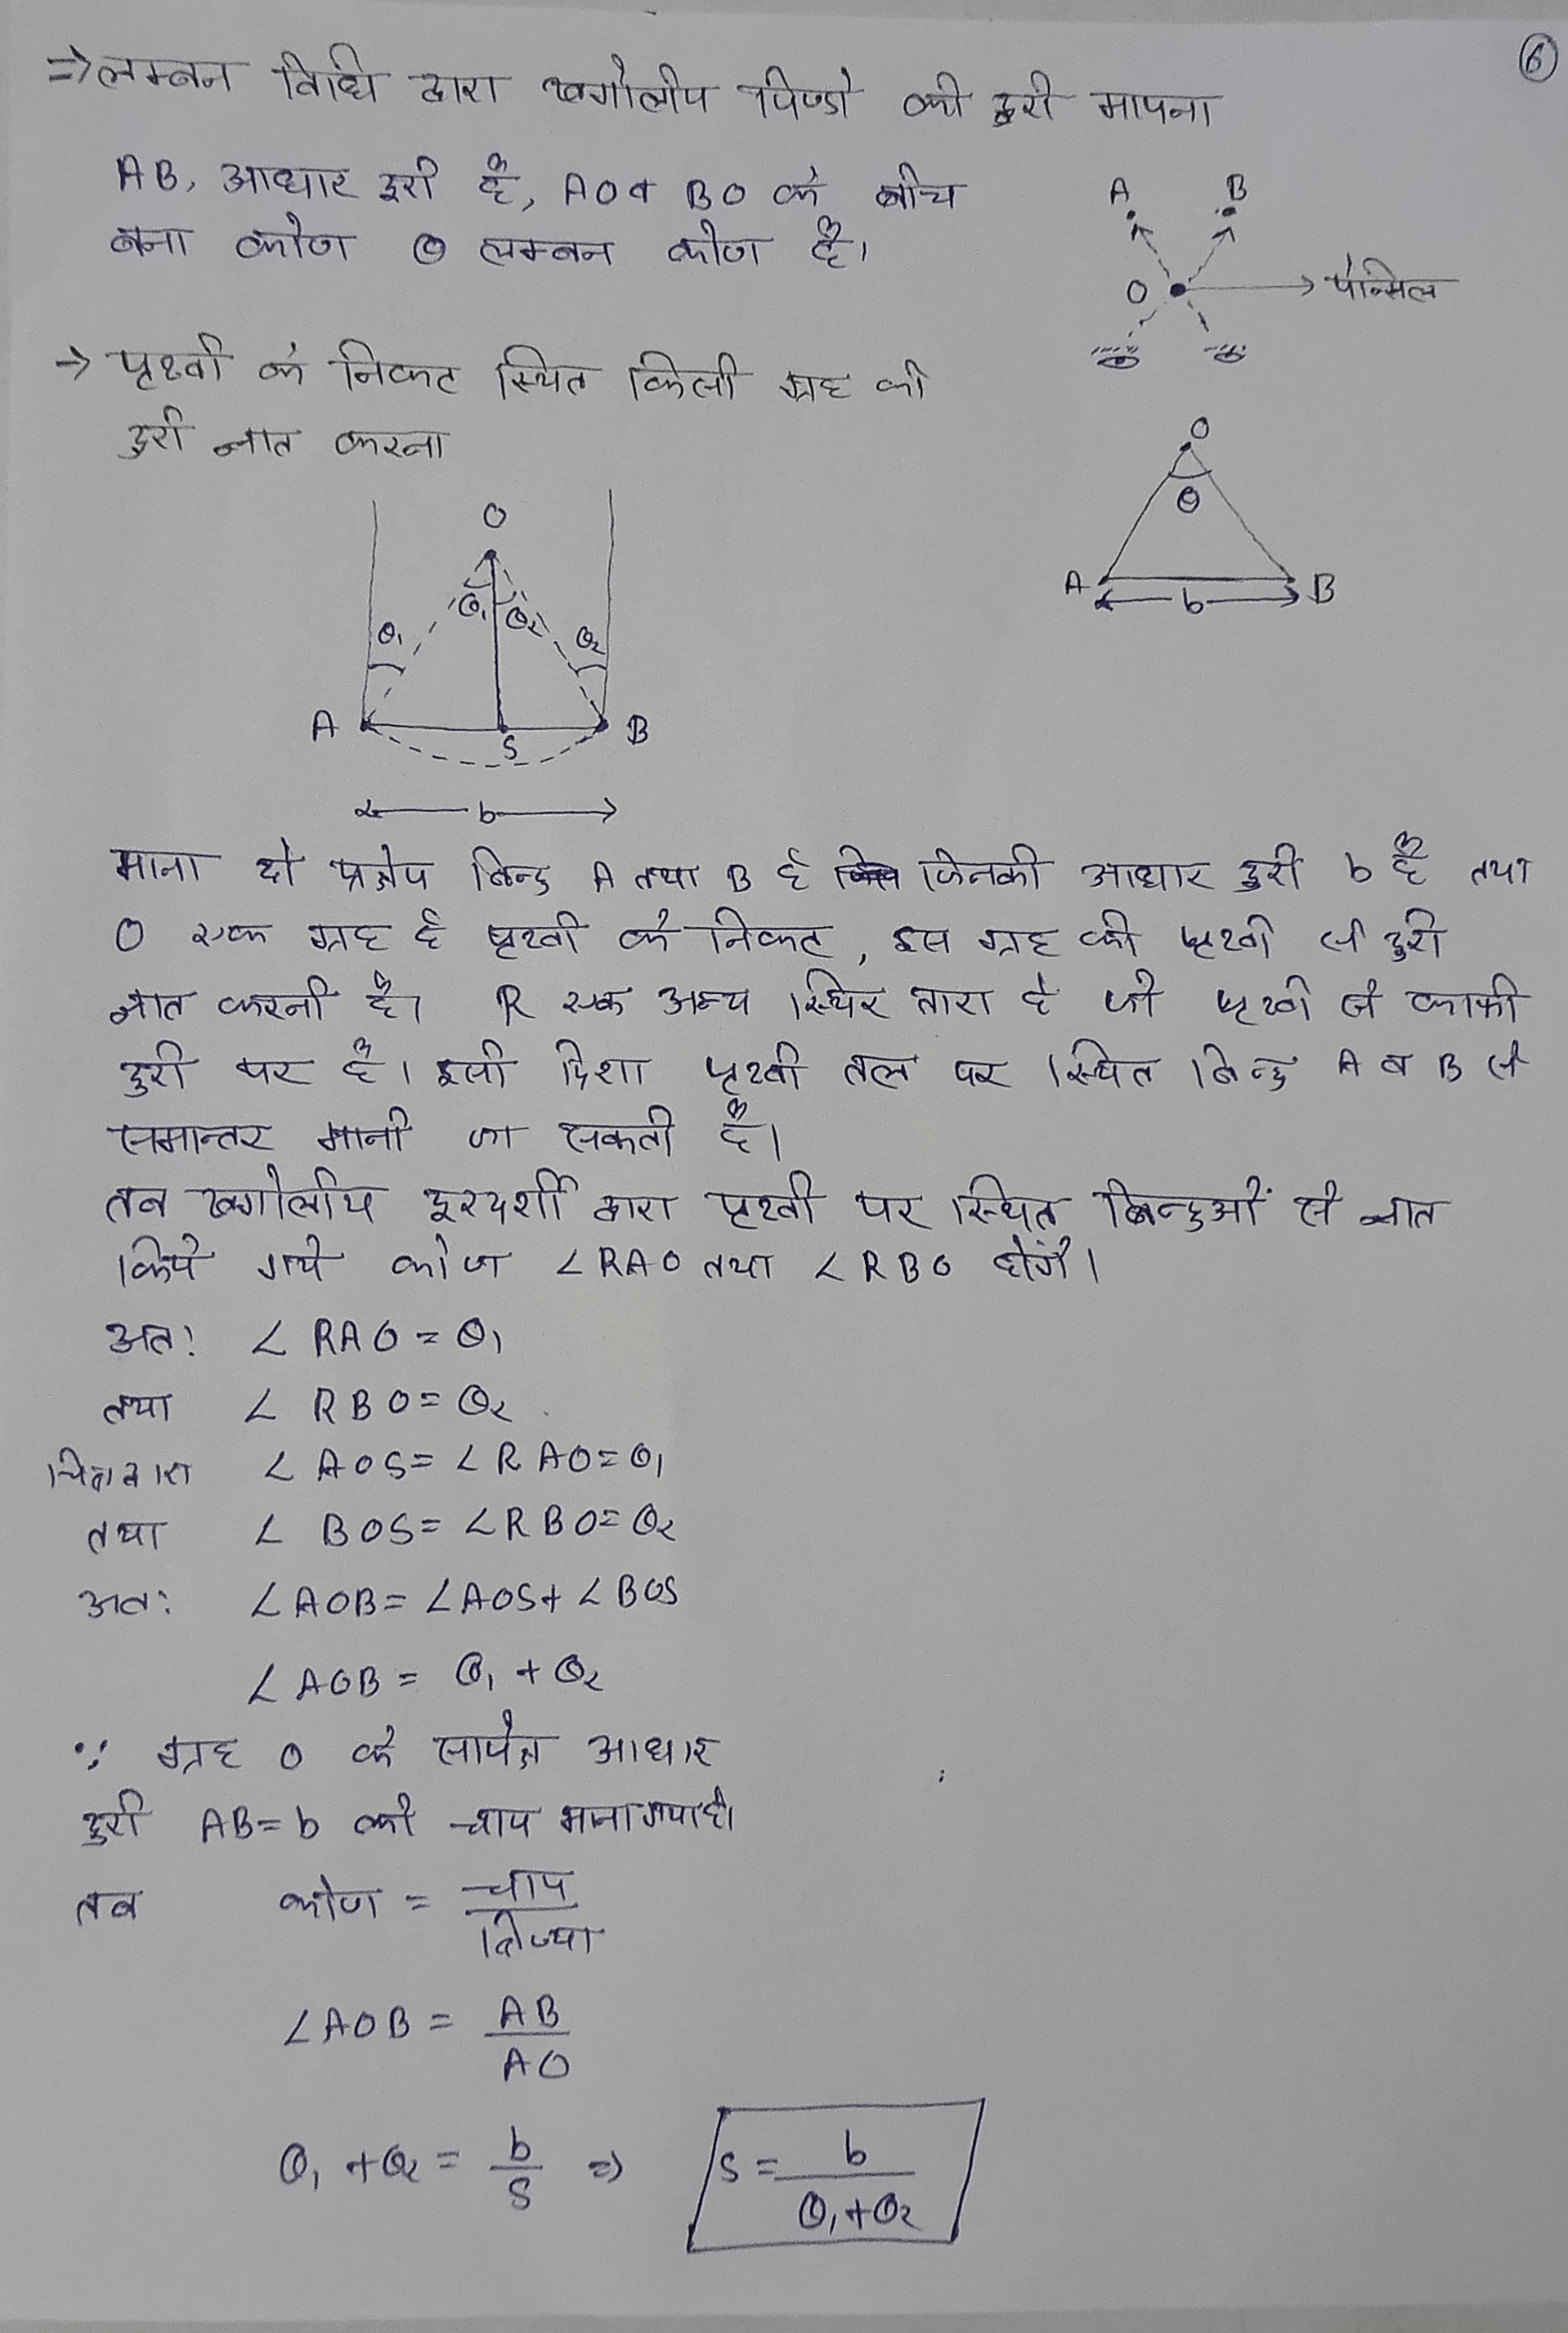 6
⇒ लम्बन विधि द्वारा खगोलीय पिण्डो की दुरी मापना
AB, आधार दुरी है, AO व BO के बीच
बना कोण θ लम्बन कोण है।
A B
O → पेन्सिल
→ पृथ्वी के निकट स्थित किसी ग्रह की
दुरी ज्ञात करना
O
θ
A B
b
O
θ₁ θ₁ θ₂ θ₂
A S B
b
माना दो प्रेक्षेप बिन्दु A तथा B है जिनकी आधार दुरी b है तथा
O एक ग्रह है पृथ्वी के निकट, इस ग्रह की पृथ्वी से दुरी
ज्ञात करनी है। R एक अन्य स्थिर तारा है जो पृथ्वी से काफी
दुरी पर है। इसी दिशा पृथ्वी तल पर स्थित बिन्दु A व B से
समान्तर मानी जा सकती है।
तब खगोलीय दुरदर्शी द्वारा पृथ्वी पर स्थित बिन्दुओं से ज्ञात
किये गये कोण ∠RAO तथा ∠RBO होगें।
अत: ∠RAO = θ₁
तथा ∠RBO = θ₂
चित्र द्वारा ∠AOS = ∠RAO = θ₁
तथा ∠BOS = ∠RBO = θ₂
अत: ∠AOB = ∠AOS + ∠BOS
∠AOB = θ₁ + θ₂
∵ ग्रह O के सापेक्ष आधार
दुरी AB = b को चाप माना गया है।
तब कोण = चाप / त्रिज्या
∠AOB = AB / AO
θ₁ + θ₂ = b / S ⇒ S = b / θ₁ + θ₂